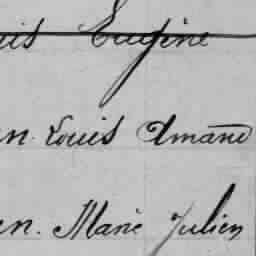 uis Eugène
en. Louis Amand
en. Marie Julien